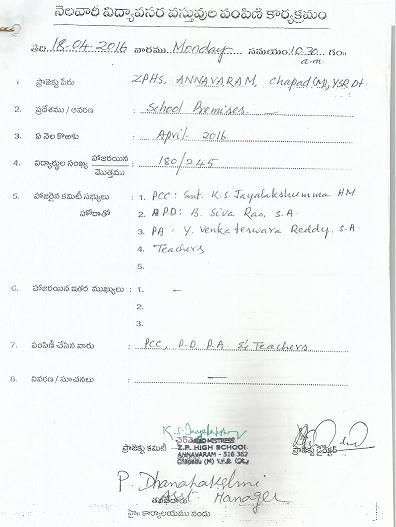 నెలవారీ విద్యావసర వస్తువుల పంపిణీ కార్యక్రమం
తేది 18-04-2016 వారము Monday సమయం 10.30 గం॥
a.m
1. ప్రాజెక్టు పేరు ZPHS, ANNAVARAM, Chapad (M), YSR Dt
2. ప్రదేశము / ఆవరణ : School Premises.
3. ఏ నెల కొఱకు : April 2016
4. విద్యార్థుల సంఖ్య హాజరయిన / మొత్తము : 180/245
5. హాజరైన కమిటీ సభ్యులు : 1. PCC: Smt. K.S. Jayalakshumma HM
హోదాతో 2. APD: B. Siva Rao, S.A
3. PA: Y. Venkateswara Reddy, S.A.
4. Teachers
5.
6. హాజరయిన ఇతర ముఖ్యులు : 1. —
2.
3.
7. పంపిణీ చేసిన వారు : PCC, P.D P.A & Teachers
8. వివరణ / సూచనలు : —
K.S. Jayalakshu
ప్రాజెక్టు కమిటీ ఛైర్మెన్ ప్రాజెక్టు డైరెక్టర్
HEADMISTRESS
Z.P. HIGH SCHOOL
ANNAVARAM - 516 362
Chapadu (M) Y.S.R. (Dt.)
P. Dhanapakelmi
Asst. Manager
హై॥ కార్యాలయము నందు